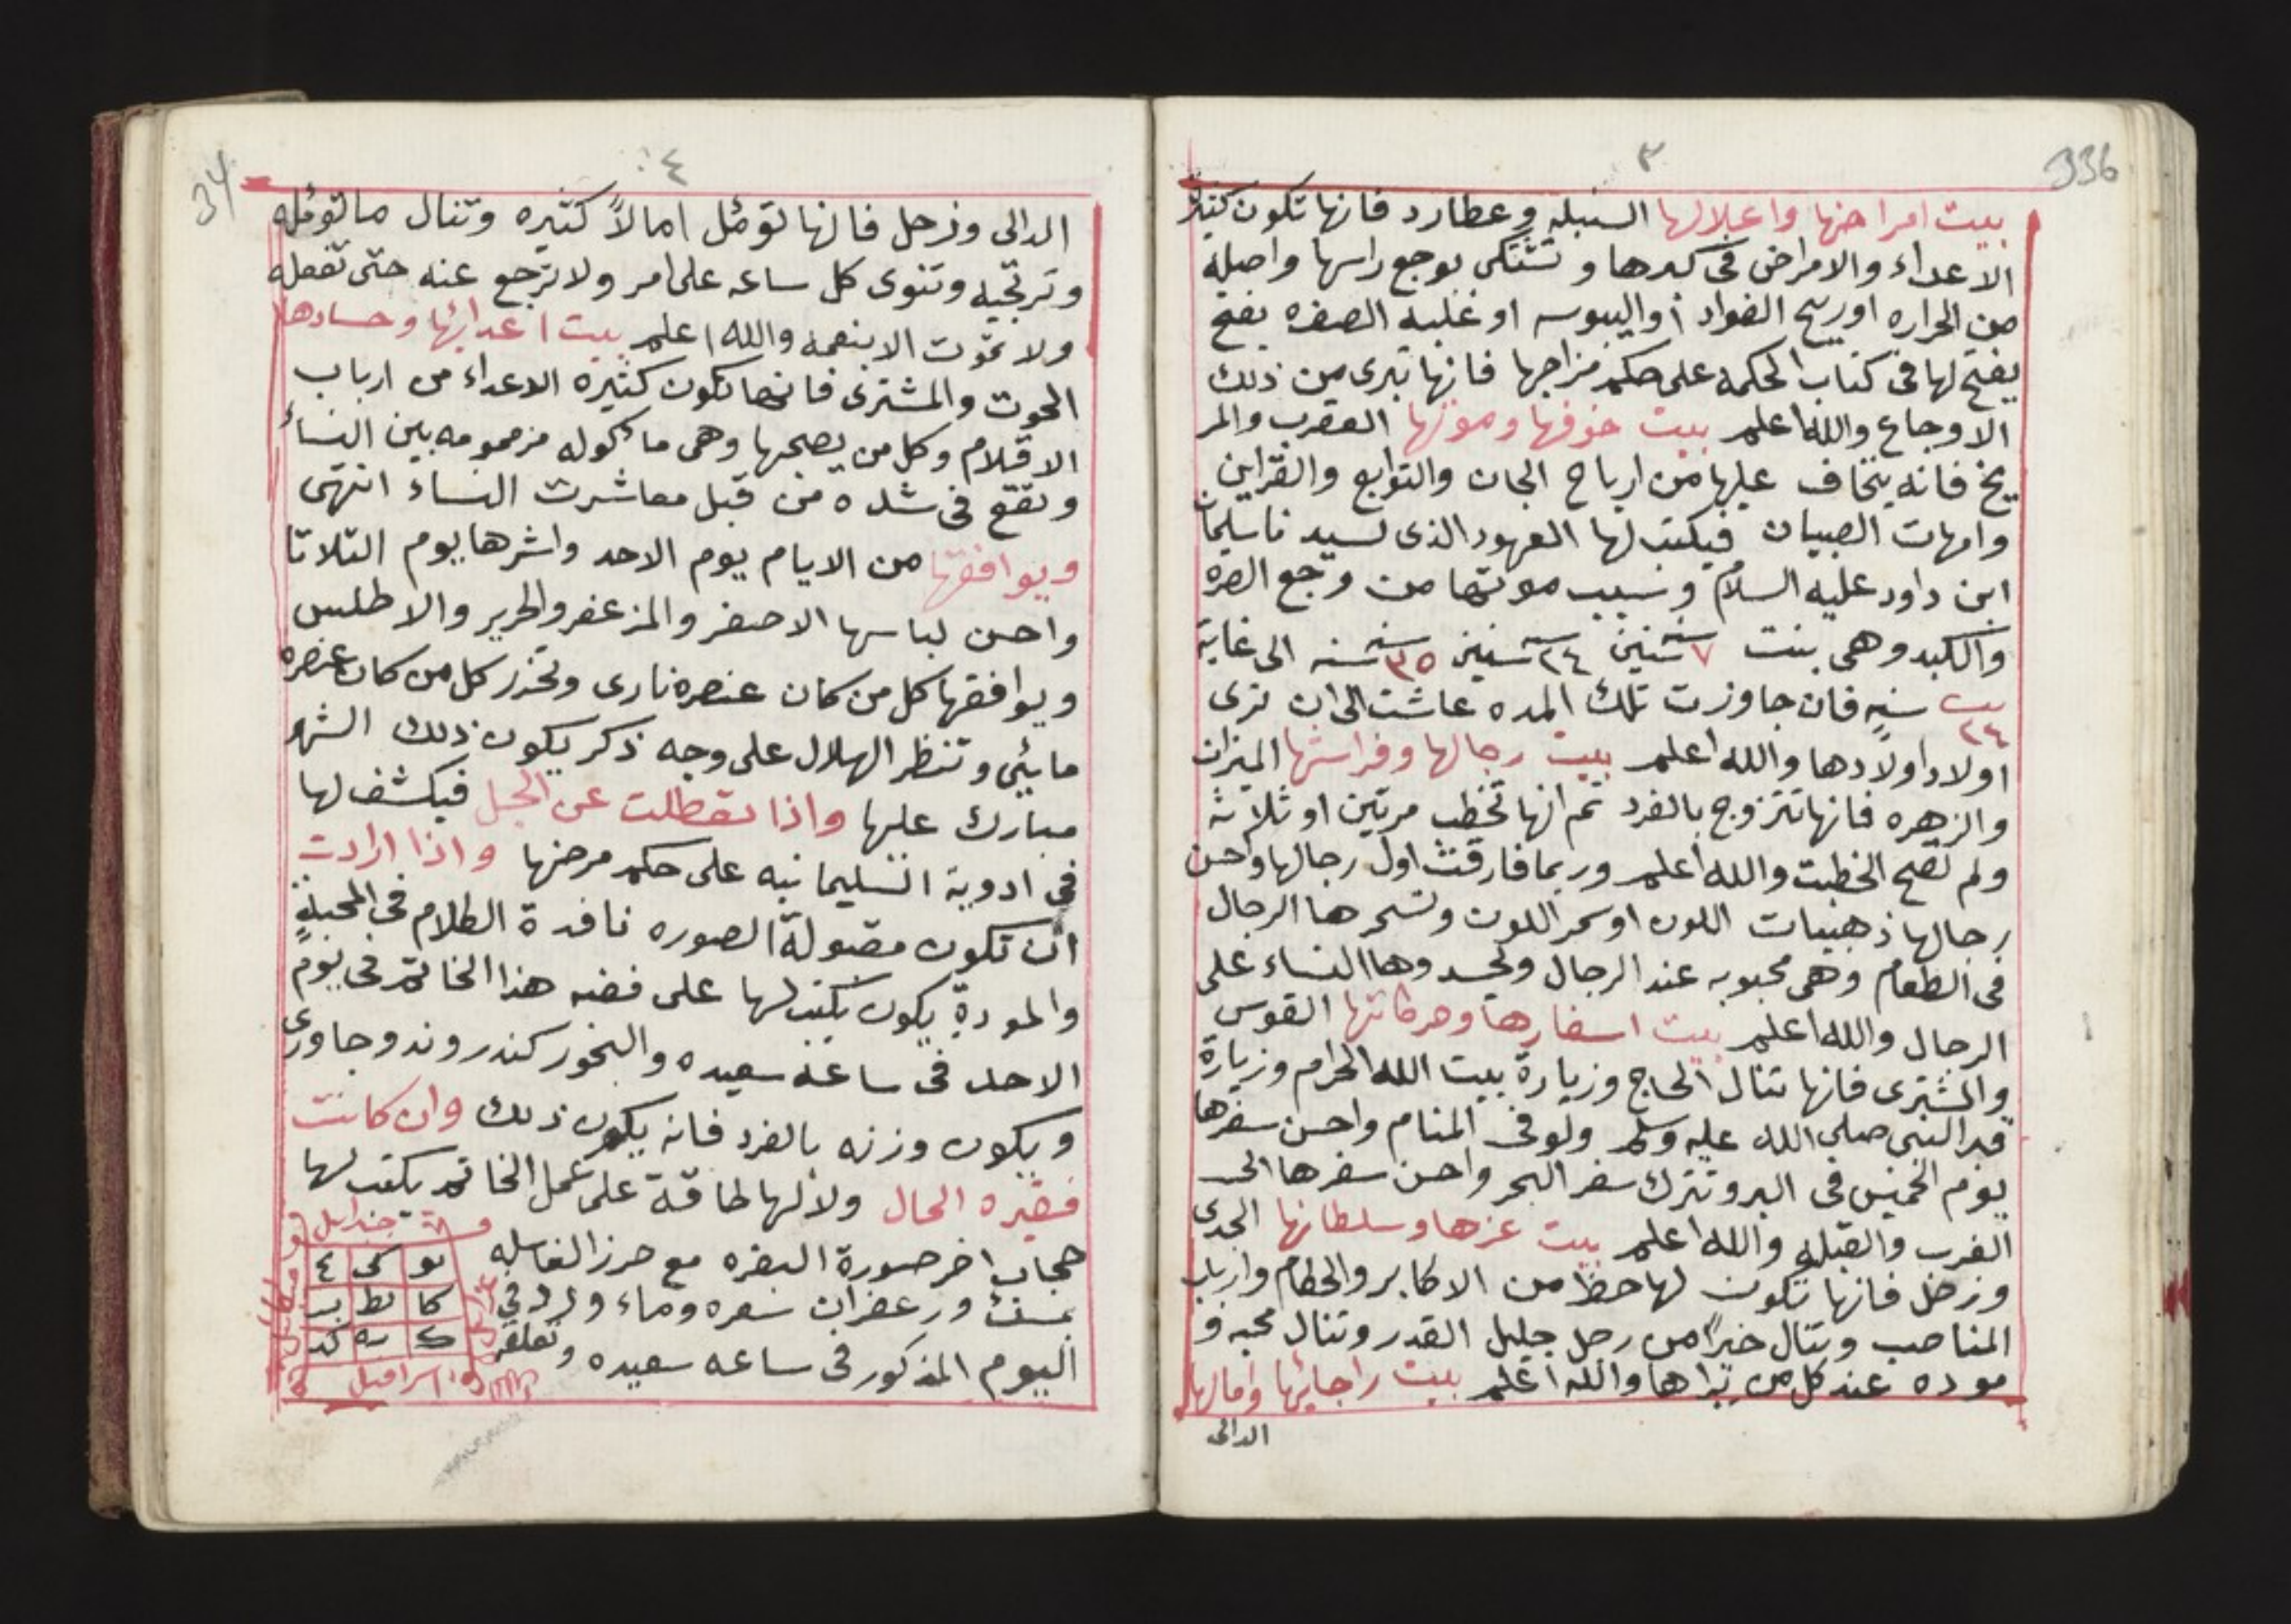 336
٣
بيت امراضها واعلالها السنبله وعطارد فانها تكون كثيرة
الاعداء والامراض فى كبدها وتشتكى بوجع راسها واصله
من الحراره اوريح الفواد أواليبوسه اوغلبة الصفره يفتح
يفتح لها فى كتاب الحكمه على حكم مزاجها فانها تبرى من ذلك
الاوجاع والله اعلم بيت خوفها وموتها العقرب والمر
يخ فانه يخاف عليها من ارياح الجان والتوابع والقراين
وامهات الصبيان فيكتب لها العهود الذى لسيد ناسليمان
ابن داود عليه السلام وسبب موتها من وجع الصره
والكبد وهى بنت ٧ سنين ٢٤ سنين ٣٥ سنه الى غاية
سنه فان جاوزت تلك المده عاشت الى ان ترى
اولاد اولادها والله اعلم بيت رجالها وفراشها الميزان
والزهره فانها تتزوج بالفرد ثم انها تخطب مرتين او ثلاثة
ولم تصح الخطبت والله اعلم وربما فارقت اول رجالها واحسن
رجالها ذهبيات اللون اوسمر اللون وتسحرها الرجال
فى الطعام وهى محبوبه عند الرجال وتحسدوها النساء على
الرجال والله اعلم بيت اسفارها وحركاتها القوس
والمشترى فانها تنال الحاج وزيارة بيت الله الحرام وزيارة
قبر النبى صلى الله عليه وسلم ولو فى المنام واحسن سفرها
يوم الخميس فى البر وتترك سفر البحر واحسن سفرها الى
الغرب والقبله والله اعلم بيت عزها وسلطانها الجدى
وزحل فانها تكون لها حظا من الاكابر والحطام وارباب
المناصب وتنال خيرًا من رجل جليل القدر وتنال محبه و
موده عند كل من يراها والله اعلم بيت راجائها وامالها
الدالى
34
٤
الدالى وزحل فانها تؤمل امالاً كثيره وتنال ماتؤمله
وترتجيه وتنوى كل ساعه على امر ولا ترجع عنه حتى تفعله
ولا تموت الا بنعمه والله اعلم بيت اعدائها وحسادها
الحوت والمشترى فانها تكون كثيرة الاعداء من ارباب
الاقلام وكل من يصحبها وهى ماكوله مزمومه بين النساء
وتقع فى شده من قبل معاشرت النساء انتهى
ويوافقها من الايام يوم الاحد واشرها يوم التلاتا
واحسن لباسها الاصفر والمزعفر والحرير والاطلس
ويوافقها كل من كان عنصره نارى وتحذر كل من كان عنصره
مايئي وتنظر الهلال على وجه ذكر يكون ذلك الشهر
مبارك عليها واذا تعطلت عن الحبل فيكشف لها
فى ادوية السليمانيه على حكم مرضها واذا ارادت
ان تكون مقبولة الصوره نافدة الكلام فى المحبة
والمودة يكون يكتب لها على فضه هذا الخاتم فى يوم
الاحد فى ساعة سعيده والبخور كندر وند وجاوى
ويكون وزنه بالفرد فانه يكون ذلك وان كانت
فقيره الحال ولا لها طاقة على عمل الخاتم يكتب لها
حجاب اخر صورة البقره مع حرز الغاسله
بمسك وزعفران شعره وماء ورد فى
اليوم المذكور فى ساعه سعيده وتعلقه
جبرايل
كا يط
اسرافيل